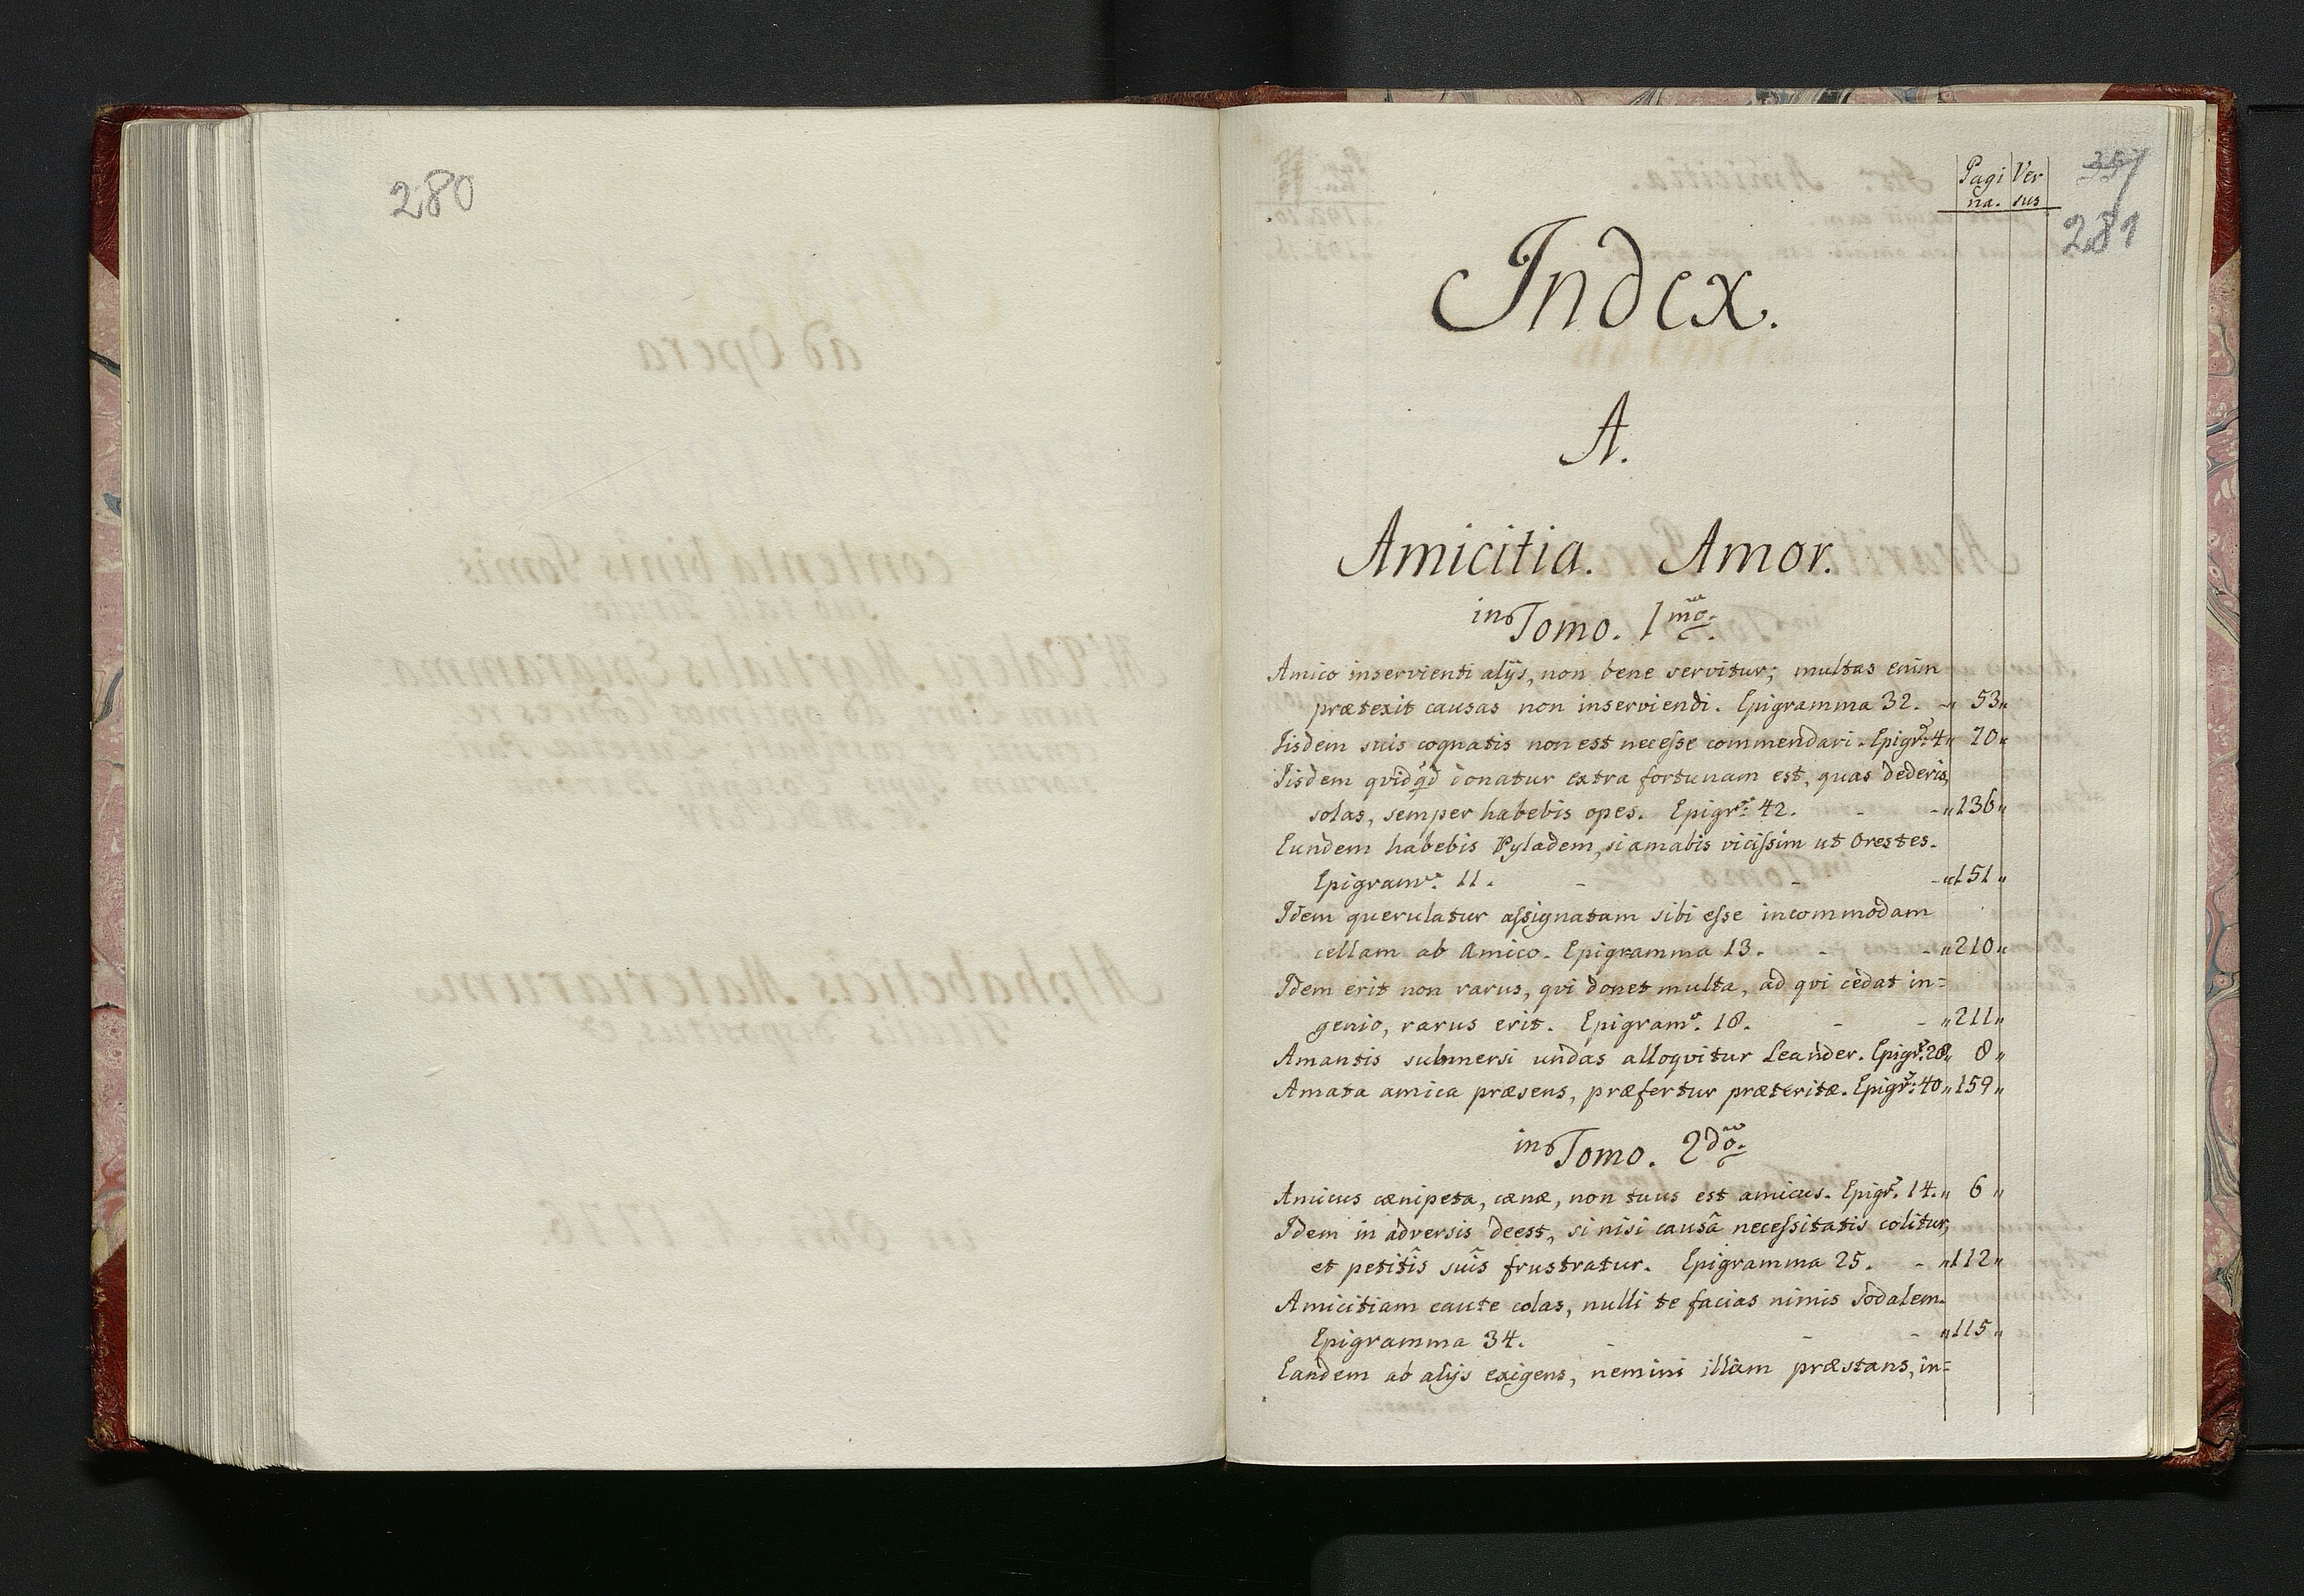 280
Pagi Ver
na. sus
357
281
Index.
A.
Amicitia. Amor.
in Tomo. 1mo.
Amico inservienti alijs, non bene servitur; multas enim
prætexit causas non inserviendi. Epigramma 32. - „ 53 „
Iisdem suis cognatis non est necesse commendari. Epigr: 4 „ 70 „
Iisdem qvidqd donatur extra fortunam est, quas dederis,
solas, semper habebis opes. Epigr: 42. - - „ 136 „
Eundem habebis Pyladem, si amabis vicissim ut Orestes.
Epigram: 11. - - - „ 151 „
Idem querulatur assignatam sibi esse incommodam
cellam ab Amico. Epigramma 13. - - „ 210 „
Idem erit non rarus, qvi donet multa, ad qvi cedat in=
genio, rarus erit. Epigram. 18. - - „ 211 „
Amantis submersi undas alloqvitur Leander. Epigr. 28 „ 8 „
Amata amica præsens, præfertur præteritæ. Epigr: 40 „ 159 „
in Tomo. 2do.
Amicus cænipeta, cænæ, non tuus est amicus. Epigr. 14. „ 6 „
Idem in adversis deest, si nisi causâ necessitatis colitur,
et petitîs suîs frustratur. Epigramma 25. - „ 112 „
Amicitiam caute colas, nulli te facias nimis Sodalem.
Epigramma 34. - - - „ 115 „
Eandem ab alijs exigens, nemini illam præstans, in=